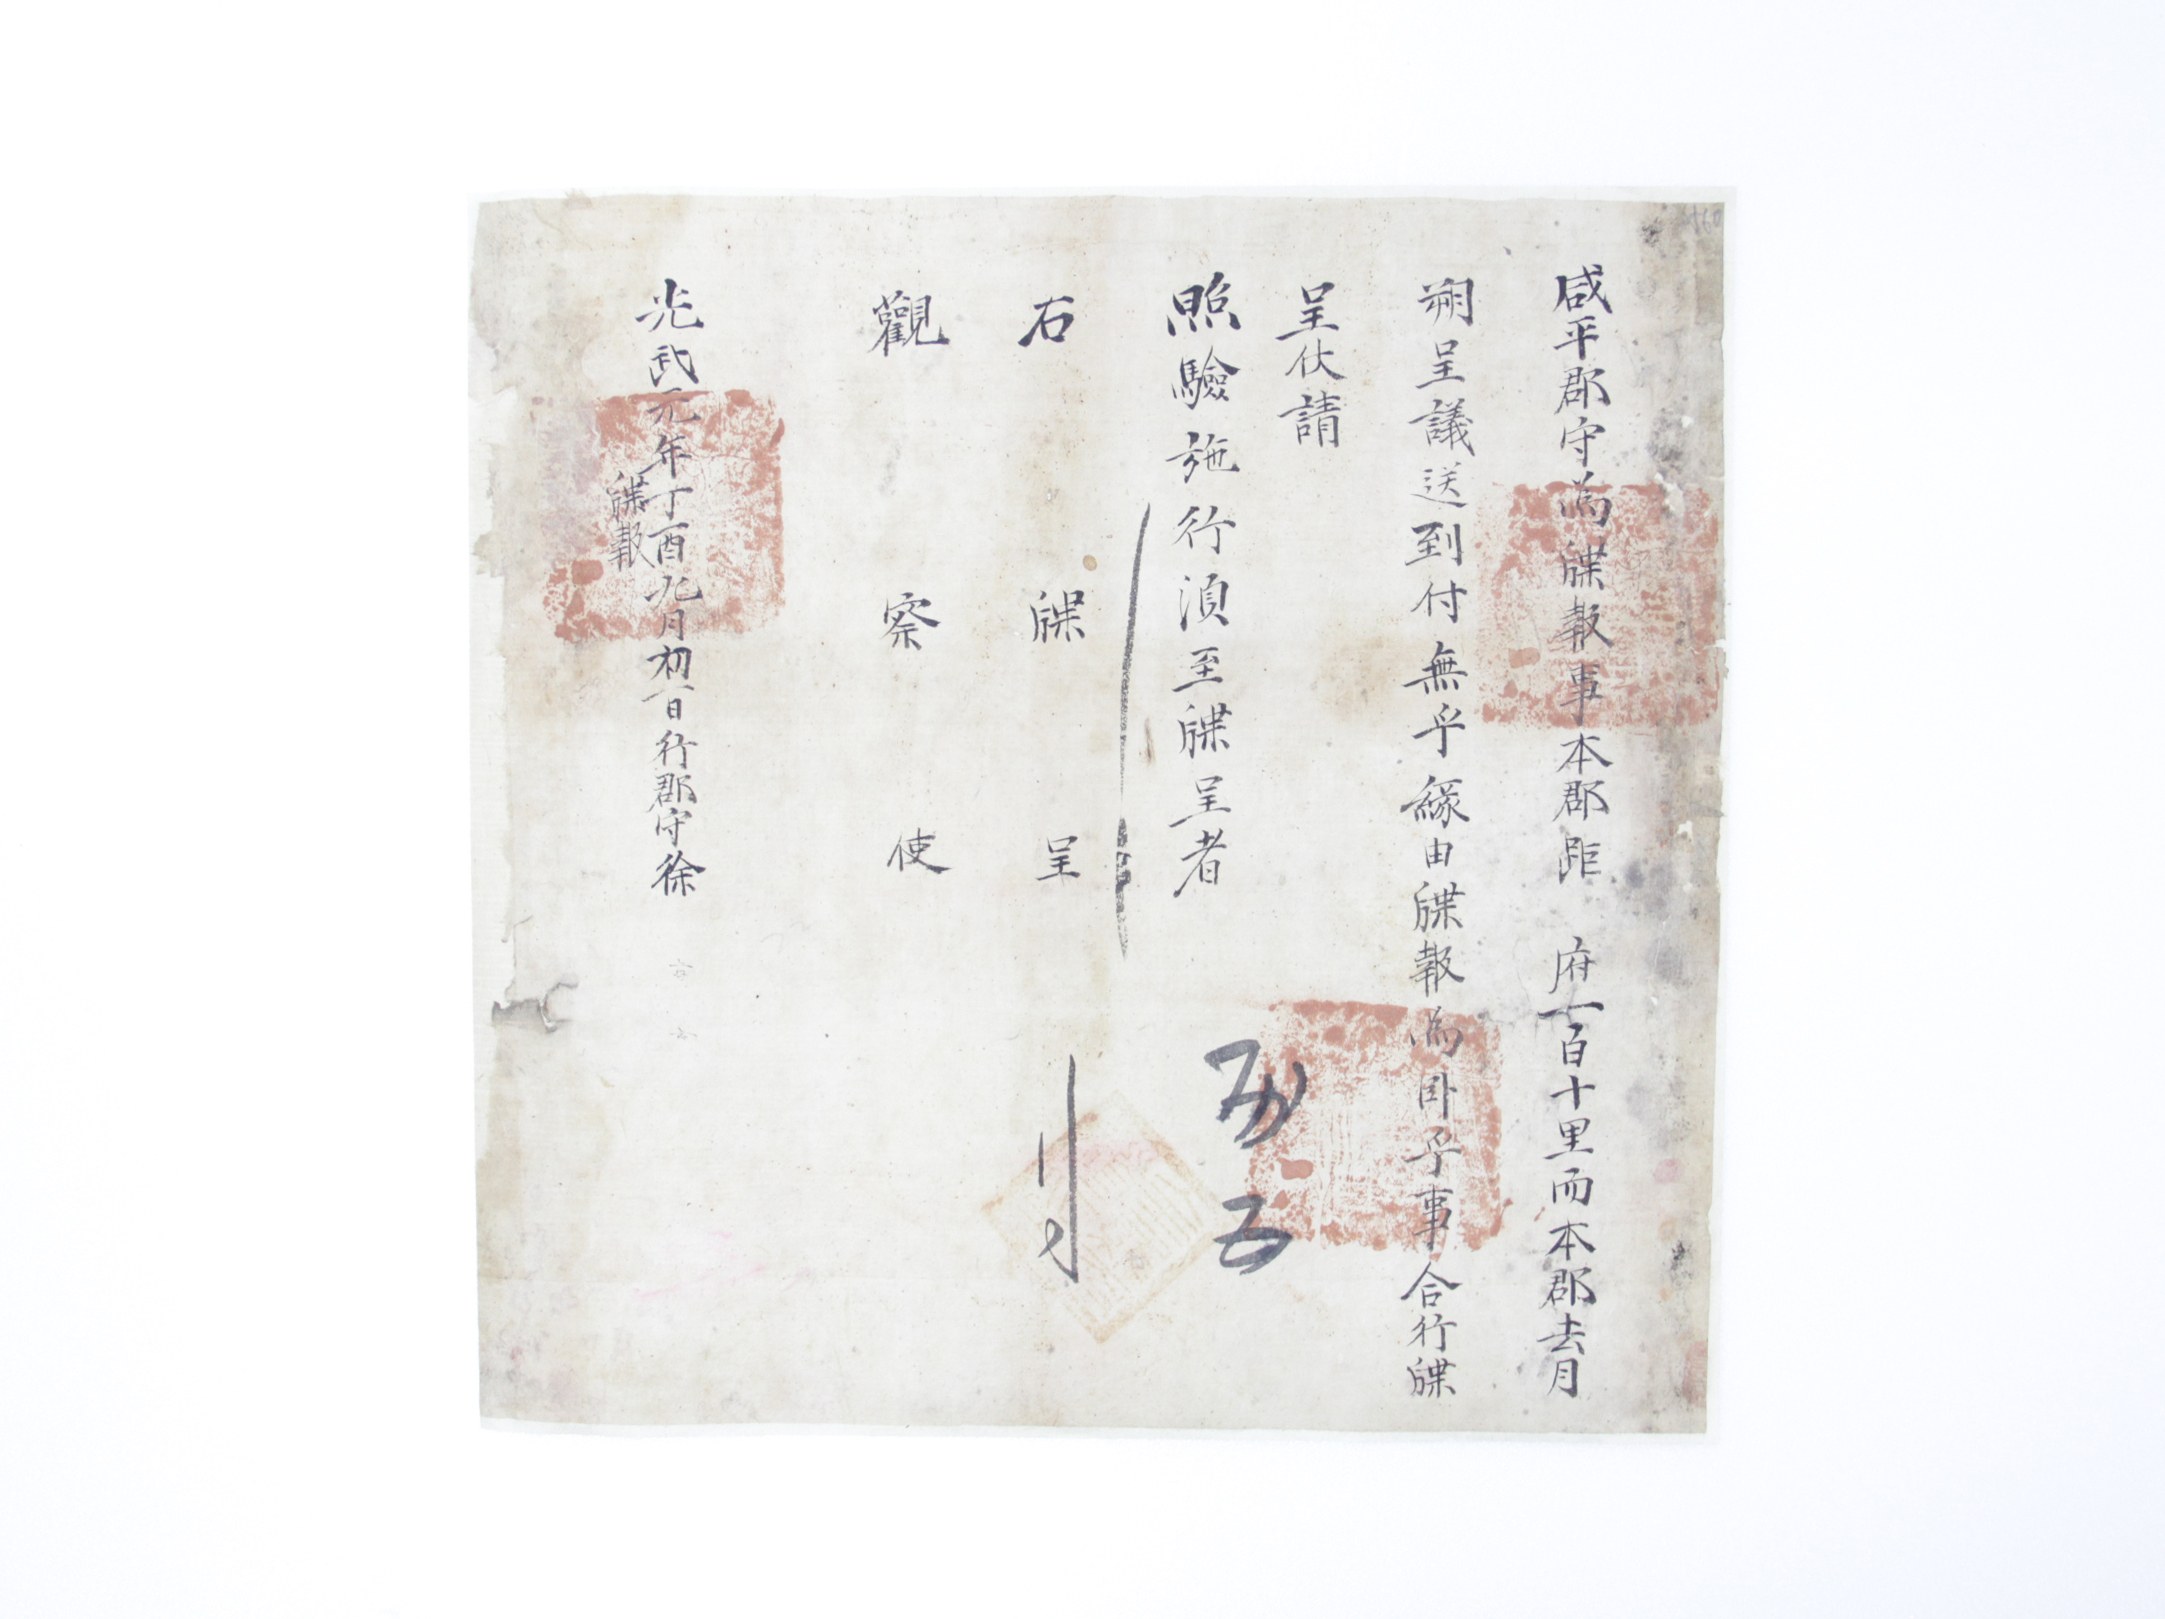 咸平郡守爲牒報事本郡距 府一百十里而本郡去月
朔呈議送到付無乎緣由牒報爲卧乎事合行牒
呈伏請
照驗施行湏至牒呈者
右 牒 呈
觀 察 使
光武元年丁酉九月初一日行郡守徐
牒報